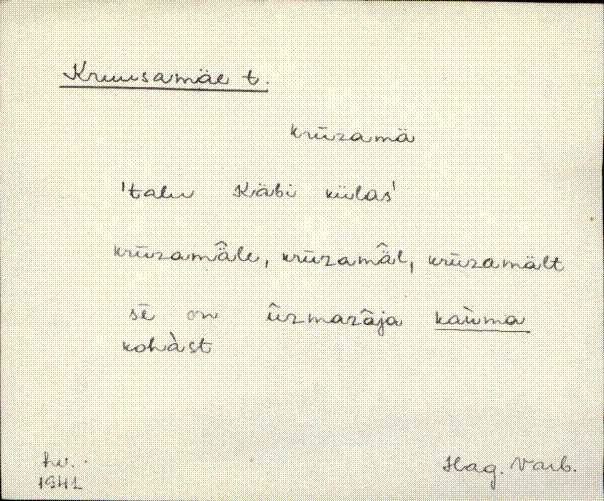 Kruusamäe t.
krūzamä
'talu Käbi külas'
krūzamä̂le, krūzamä̂l, krūzamält
sē on ûrmarâja kaùma
kohàst
hv.
1941
Hag. Varb.